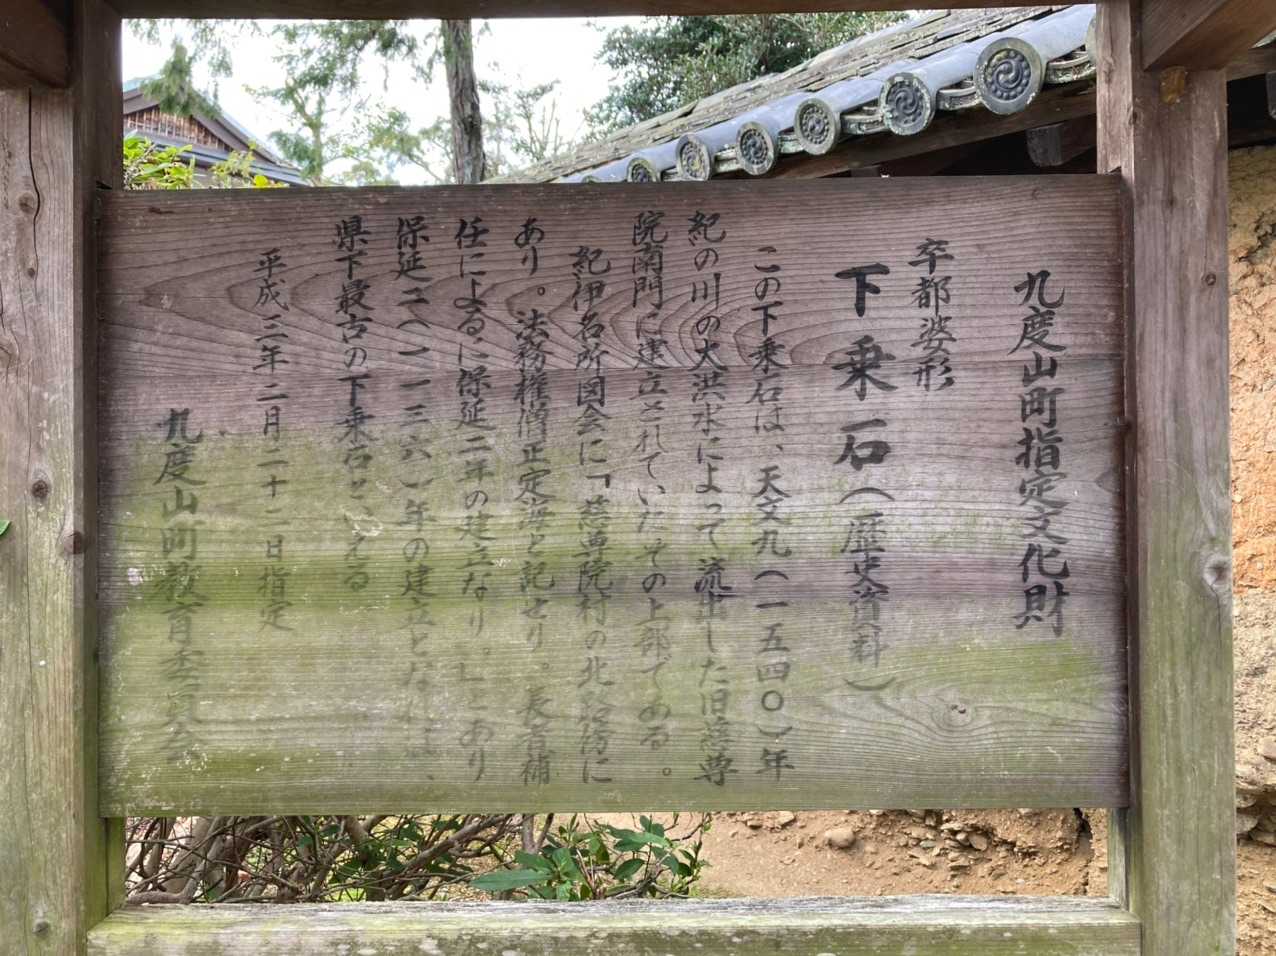 九度山町指定文化財
卒都婆形
下乗石(歴史資料)
この下乗石は、天文九(一五四〇)年
紀の川の大洪水によって流出した旧慈尊
院南門に建立されていたその上部である。
紀伊名所図会に「慈尊院村の北 に
あり。法務権僧正定海と記せり。長首補
任によるに保延二年の建立なり。」とあり
保延二(一一三六)年の建立となれば、
県下最古の下乗石といえる
平成三年二月二十二日指定
九度山町教育委員会